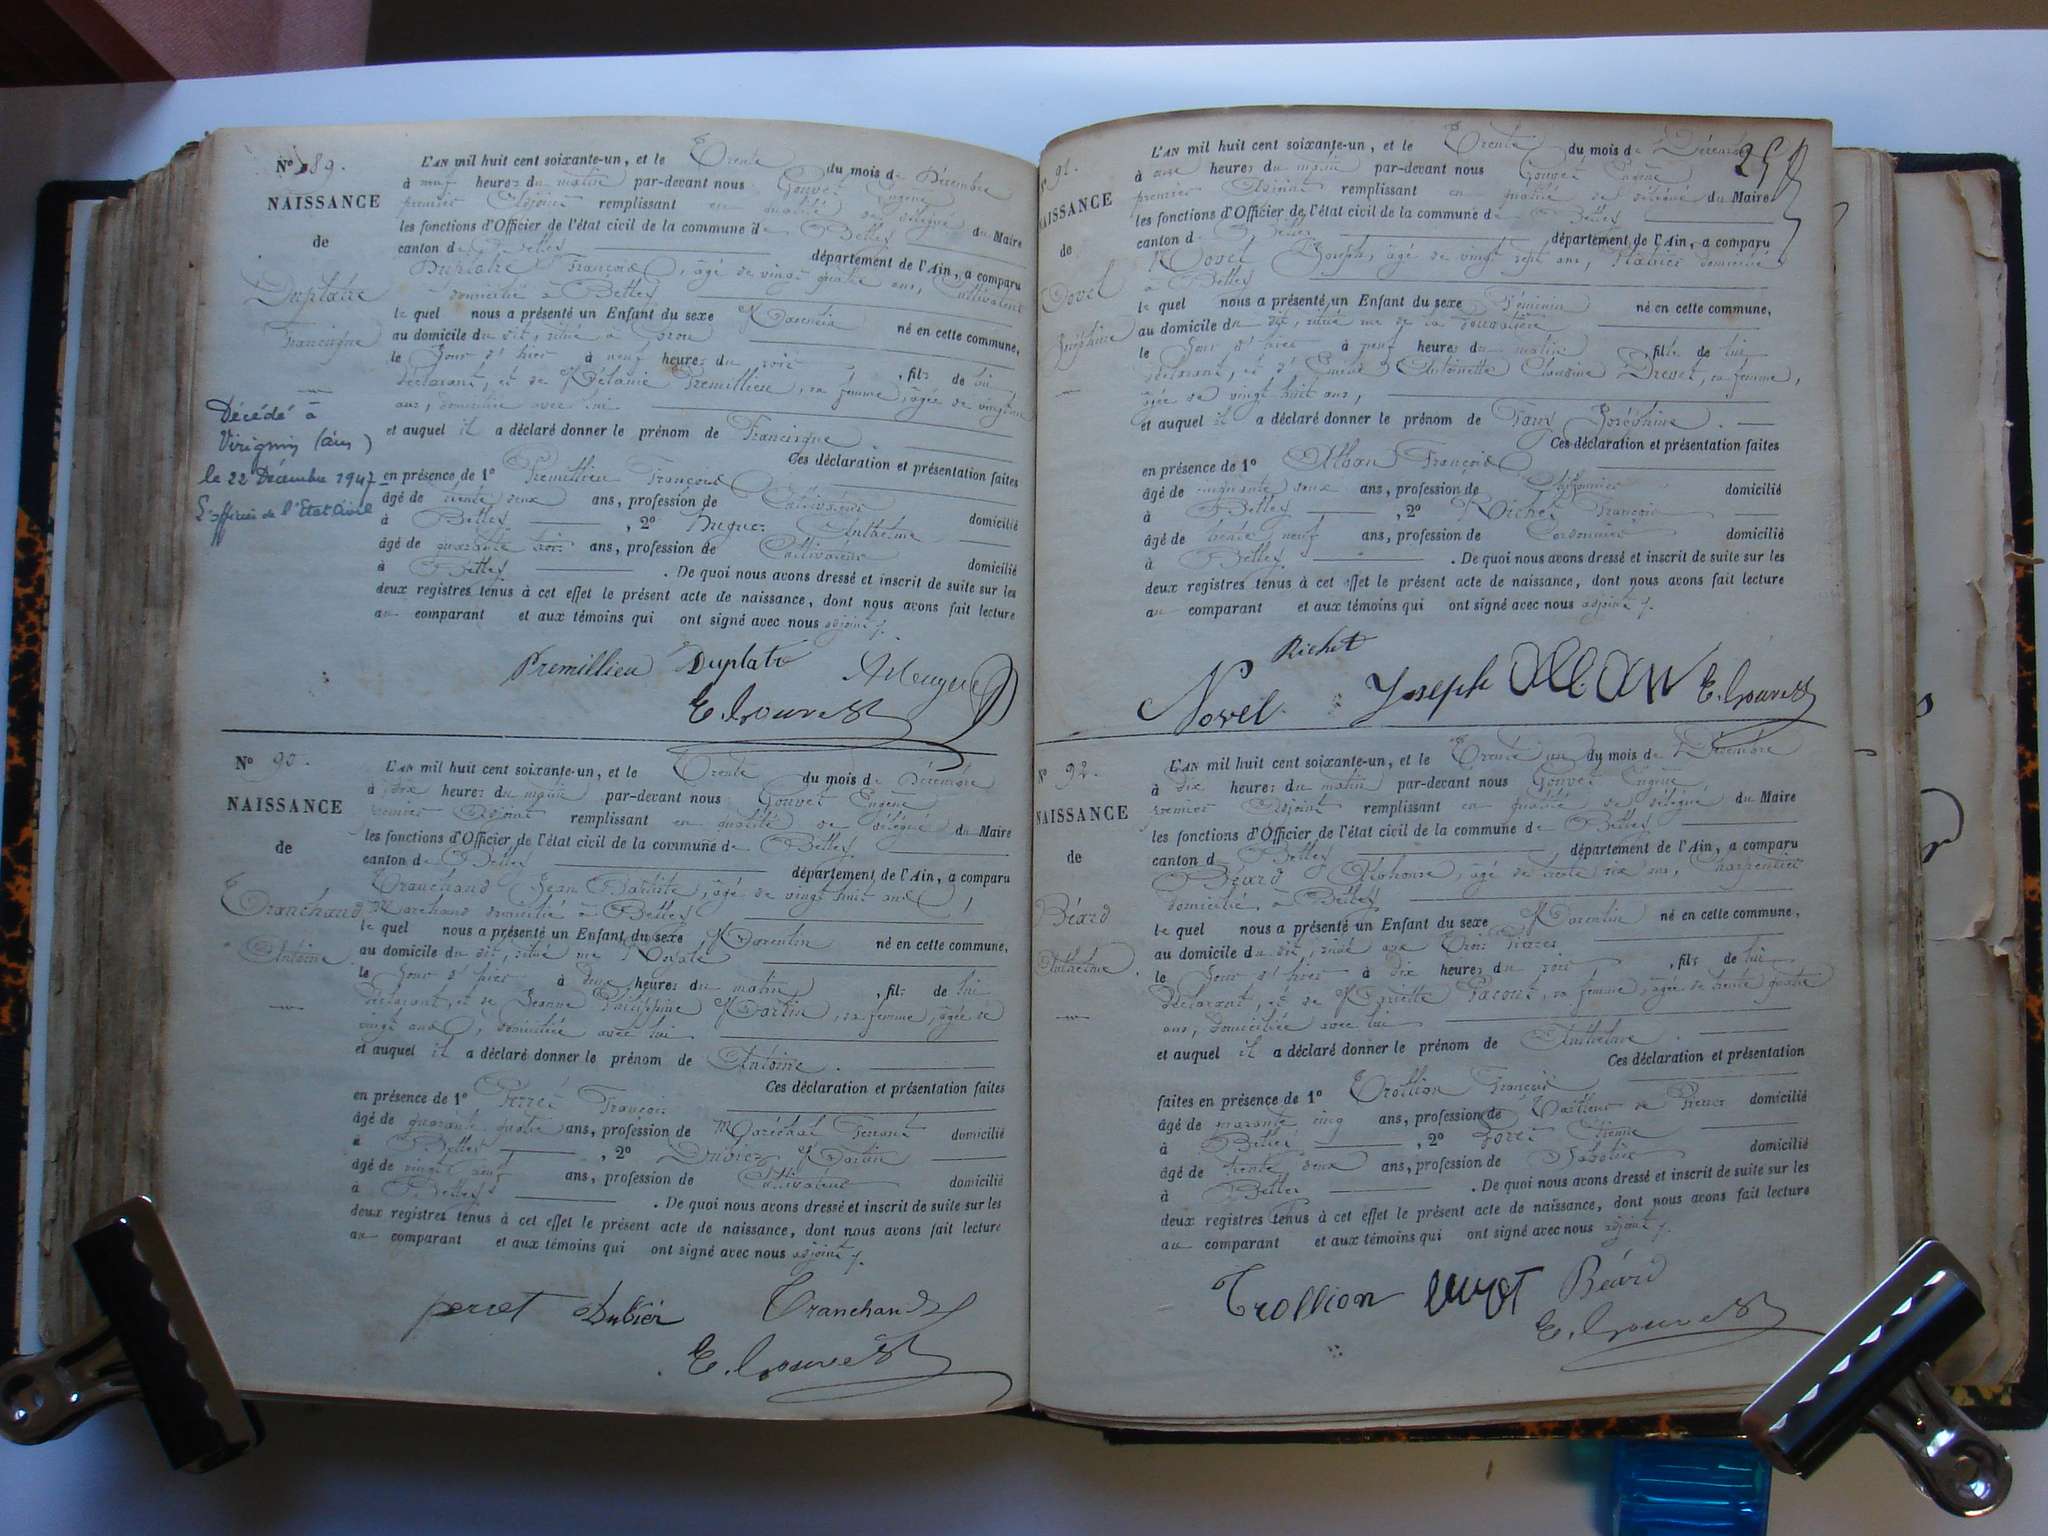 N° 89.
NAISSANCE
de
Duplatre
Francisque
Décédé à
Virignin (Ain)
le 22 Décembre 1947
L'officier de l'Etat Civil
L'AN mil huit cent soixante-un, et le Trente du mois de Décembre
à neuf heures du matin par-devant nous Gouvet Eugène
premier Adjoint remplissant en qualité de délégué du Maire
les fonctions d'Officier de l'état civil de la commune de Belley
canton de Belley département de l'Ain, a comparu
Duplatre François, âgé de vingt quatre ans, Cultivateur
domicilié à Belley
le quel nous a présenté un Enfant du sexe Masculin né en cette commune,
au domicile du dit, situé à
le Jour d'hier à neuf heures du soir, fils de lui
déclarant, et de Mélanie Premillieu, sa femme, âgée de
ans, domiciliée avec lui
et auquel il a déclaré donner le prénom de Francisque.
Ces déclaration et présentation faites
en présence de 1° Premillieu François
âgé de trente deux ans, profession de Cultivateur domicilié
à Belley, 2° Anthelme
âgé de quarante trois ans, profession de Cultivateur domicilié
à Belley. De quoi nous avons dressé et inscrit de suite sur les
deux registres tenus à cet effet le présent acte de naissance, dont nous avons fait lecture
au comparant et aux témoins qui ont signé avec nous adjoint
Premillieu Duplatre
E. Gouvet
N° 90.
NAISSANCE
de
Tranchand
Antoine
L'AN mil huit cent soixante-un, et le Trente du mois de Décembre
à dix heures du matin par-devant nous Gouvet Eugène
premier Adjoint remplissant en qualité de délégué du Maire
les fonctions d'Officier de l'état civil de la commune de Belley
canton de Belley département de l'Ain, a comparu
Tranchand Jean Baptiste, âgé de vingt huit ans,
Marchand domicilié à Belley
le quel nous a présenté un Enfant du sexe Masculin né en cette commune,
au domicile du dit, situé rue Royale
le Jour d'hier à deux heures du matin, fils de lui
déclarant, et de Jeanne Philippine Martin, sa femme, âgée de
vingt ans, domiciliée avec lui
et auquel il a déclaré donner le prénom de Antoine.
Ces déclaration et présentation faites
en présence de 1° Perret François
âgé de quarante quatre ans, profession de Maréchal Ferrant domicilié
à Belley, 2° Dubier Martin
âgé de vingt neuf ans, profession de Cultivateur domicilié
à Belley. De quoi nous avons dressé et inscrit de suite sur les
deux registres tenus à cet effet le présent acte de naissance, dont nous avons fait lecture
au comparant et aux témoins qui ont signé avec nous adjoint
perret Dubier Tranchand
E. Gouvet
25
N° 91.
NAISSANCE
de
Novel
Joséphine
L'AN mil huit cent soixante-un, et le Trente du mois de Décembre
à onze heures du matin par-devant nous Gouvet Eugène
premier Adjoint remplissant en qualité de délégué du Maire
les fonctions d'Officier de l'état civil de la commune de Belley
canton de Belley département de l'Ain, a comparu
Novel Joseph, âgé de vingt sept ans, domicilié
à Belley
le quel nous a présenté un Enfant du sexe Féminin né en cette commune,
au domicile du dit, situé rue de la
le Jour d'hier à neuf heures du matin fille de lui
déclarant, et d' Antoinette Claudine Drevet, sa femme,
âgée de vingt huit ans,
et auquel il a déclaré donner le prénom de Joséphine.
Ces déclaration et présentation faites
en présence de 1° Alban François
âgé de cinquante deux ans, profession de domicilié
à Belley, 2° Richet François
âgé de trente neuf ans, profession de Cordonnier domicilié
à Belley. De quoi nous avons dressé et inscrit de suite sur les
deux registres tenus à cet effet le présent acte de naissance, dont nous avons fait lecture
au comparant et aux témoins qui ont signé avec nous adjoint
Richet
Novel Joseph E. Gouvet
N° 92.
NAISSANCE
de
Béard
Anthelme
L'AN mil huit cent soixante-un, et le Trente un du mois de Décembre
à dix heures du matin par-devant nous Gouvet Eugène
premier Adjoint remplissant en qualité de délégué du Maire
les fonctions d'Officier de l'état civil de la commune de Belley
canton de Belley département de l'Ain, a comparu
Béard Alphonse, âgé de trente six ans, Charpentier
domicilié à Belley
le quel nous a présenté un Enfant du sexe Masculin né en cette commune,
au domicile du dit, situé aux Trois
le Jour d'hier à dix heures du soir, fils de lui
déclarant, et de Mariette Pacout, sa femme, âgée de trente quatre
ans, domiciliée avec lui
et auquel il a déclaré donner le prénom de Anthelme.
Ces déclaration et présentation
faites en présence de 1° Trollion François
âgé de quarante cinq ans, profession de Tailleur de Pierres domicilié
à Belley, 2° Etienne
âgé de trente deux ans, profession de Sabotier domicilié
à Belley. De quoi nous avons dressé et inscrit de suite sur les
deux registres tenus à cet effet le présent acte de naissance, dont nous avons fait lecture
au comparant et aux témoins qui ont signé avec nous adjoint
Trollion Béard
E. Gouvet